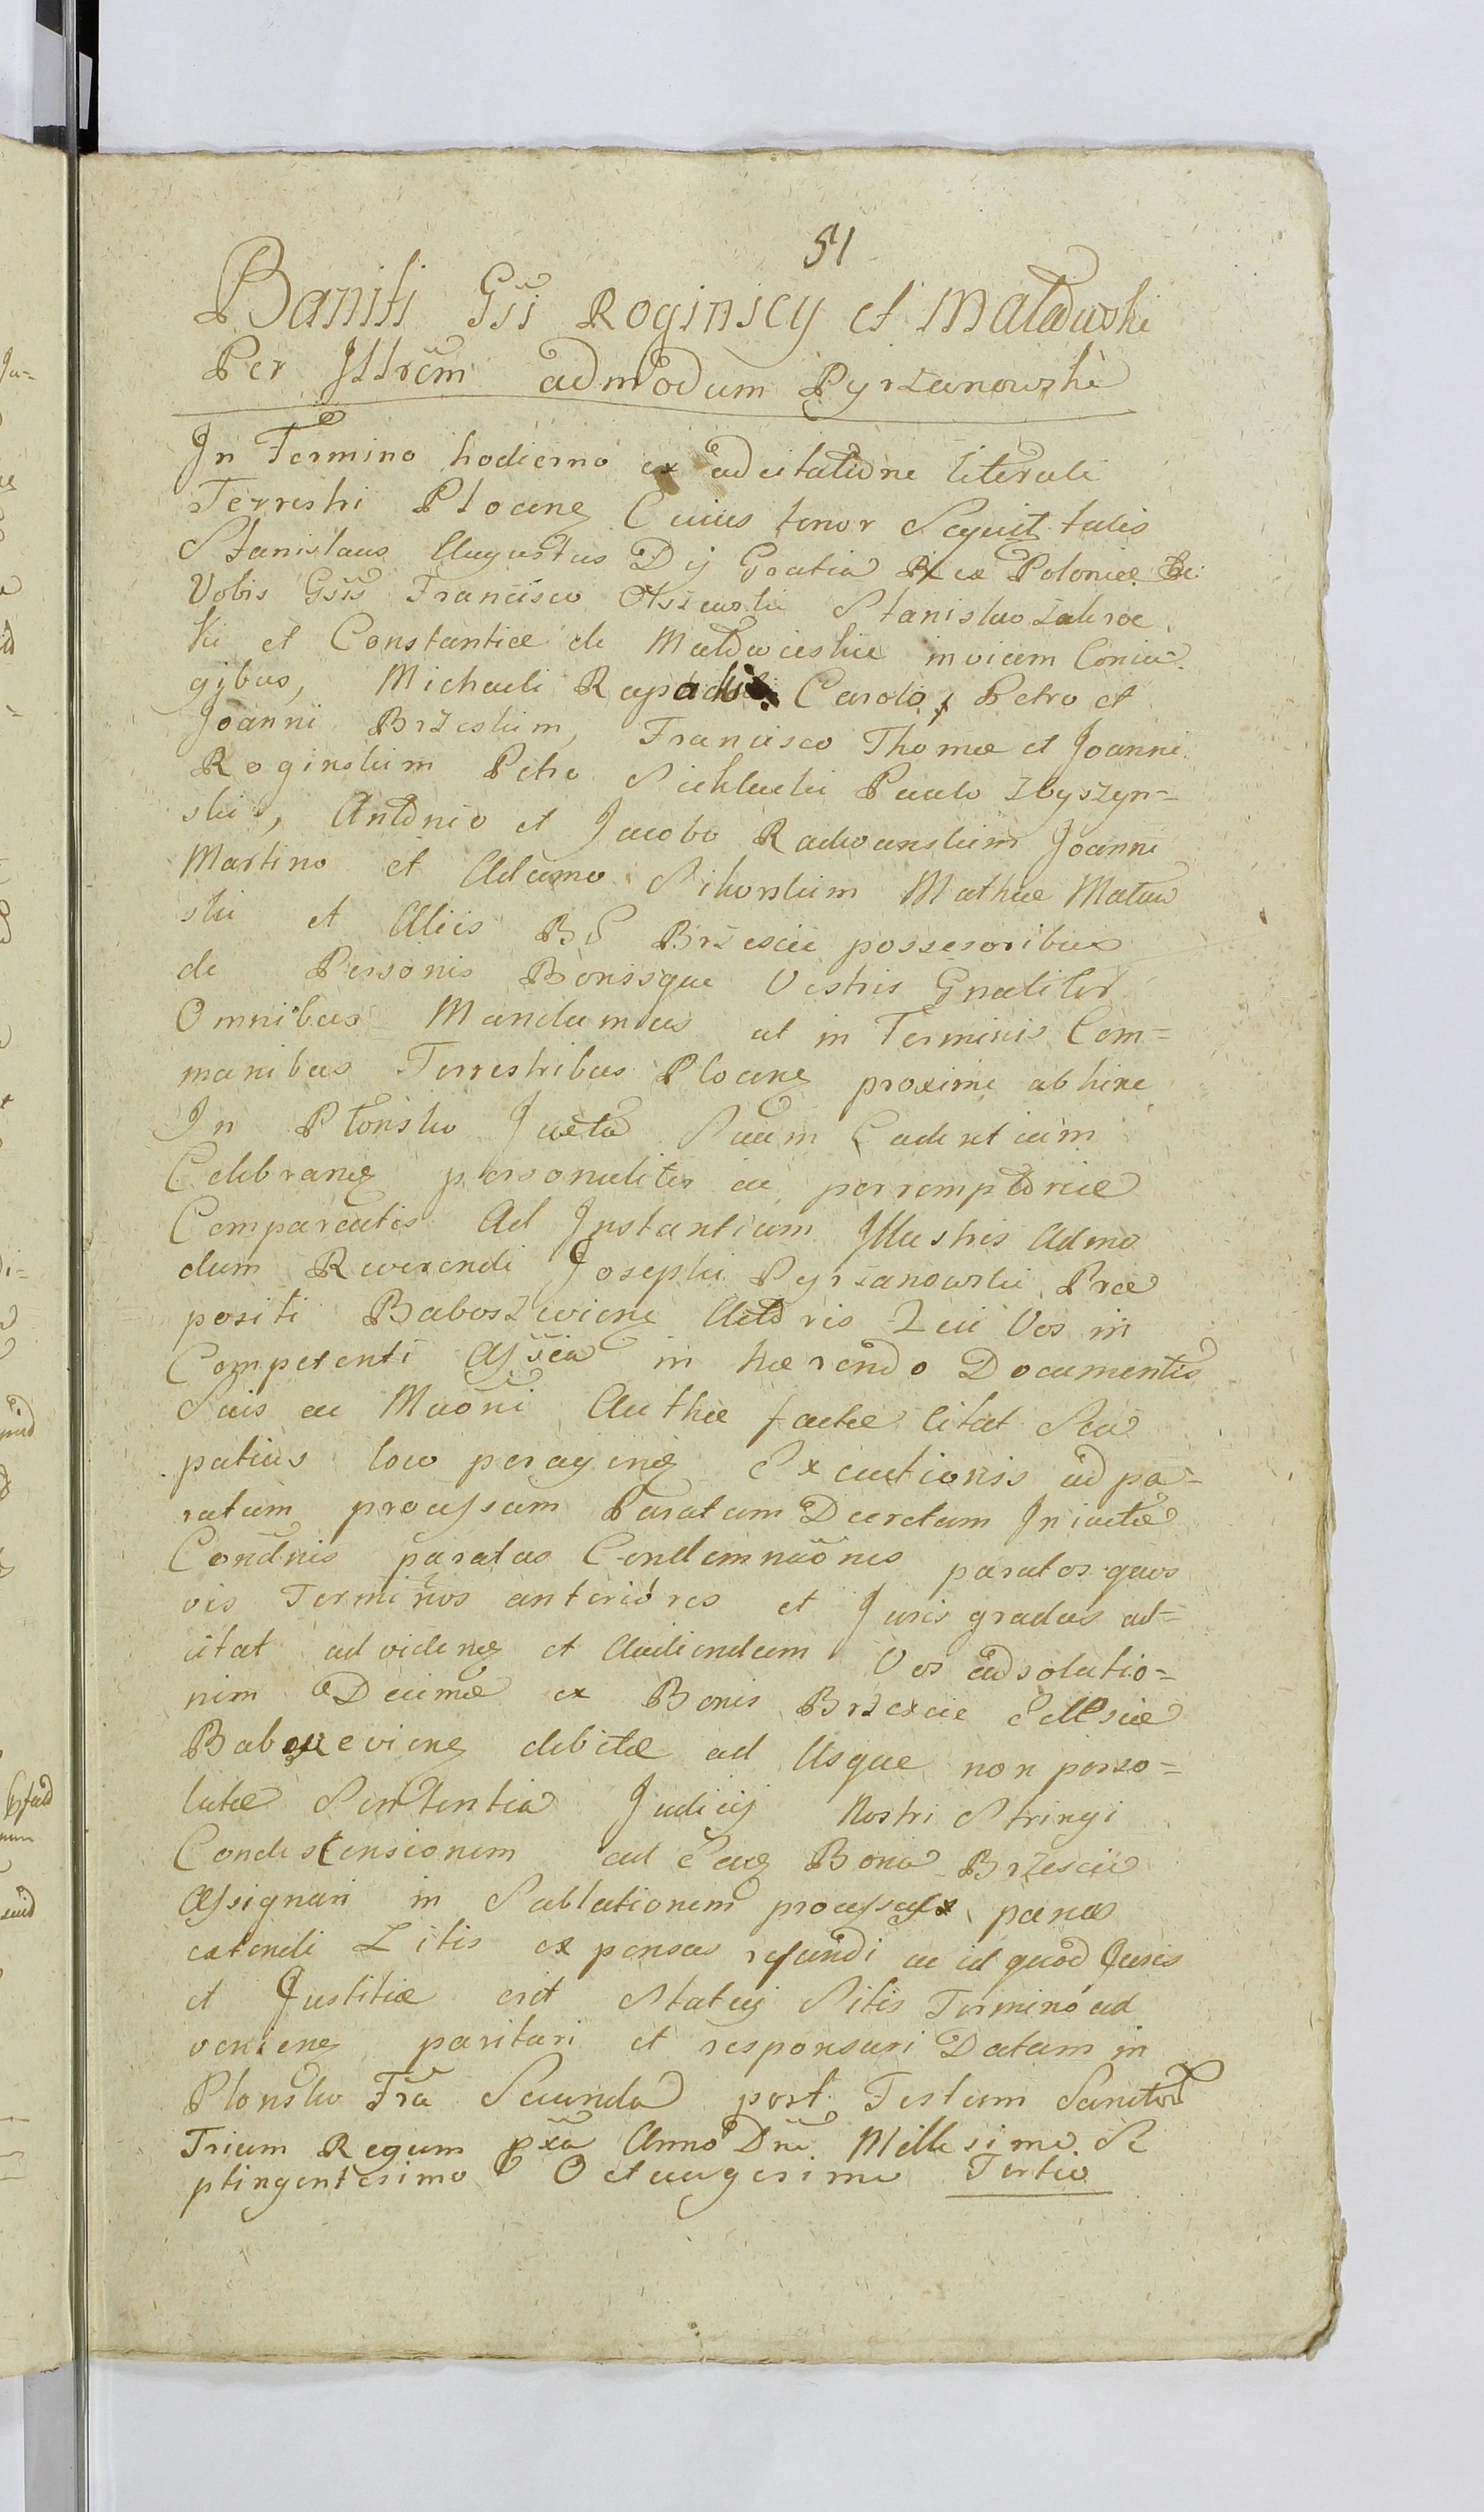 51
Baniti Gsi Roginscy et Matowski
Per Illrem admodum Pyrzanowski
In Termino hodierno ex adcitatione literali
Terrestri Plocen Cuius tenor Sequit talis
Stanislaus Augustus Dij Gratia Rex Poloniæ &c:
Vobis Gsis Francisco Olszewski Stanislao
ki et Constantiæ de invicem Coniu
gibus, Michaeli Carolo, Petro et
Joanni Brzeskim, Francisco Thomæ et Joanni
Roginskim Petro Paulo Zbyszyn=
ski, Antonio et Jacobo Radwanskim Joanni
Martino et Adamo Sikorskim Mathiæ Matow
ski et Aliis BS Brzescie possesoribus
de Personis Bonisque Vestris Gnaliter
Omnibus Mandamus ut in Terminis Com=
munibus Terrestribus Plocen proxime abhinc
In Plonsko Juxta Suum Cadentiam
Celebran personaliter ac perremptorie
Compareatis Ad Instantiam Illustris Admo
dum Reverendi Josephi Pyrzanowski Præ
positi Baboszevien Actoris Qui Vos in
Competenti Assia in hærendo Documentis
Suis ac Maoni Authæ factæ citat Seu
potius loco peragen Executionis ad pa=
ratum processum Paratum Decretum Iniectæ
Condnis paratas Condemnaones paratos quos
vis Terminos anteriores et Juris gradus ad=
citat ad viden et Audiendum Vos ad solutio=
nem Decimæ ex Bonis Brzescie Ecllesiæ
Baboszevien debitæ ad Usque non perso=
lutæ Sententia Judicij Nostri Stringi
Condescensionem ad Ead Bona Brzescie
Assignari in Sublationem processus pænas
extendi Litis expensas refundi ac id quod Juris
et Justitiæ erit Statuj Sitis Termino ad
venien parituri et responsuri Datum in
Plonsko Fra Secunda post Festum Sanctor
Trium Regum pxa Anno Dni Millesimo Se
ptingentesimo Octuagesimo Tertio